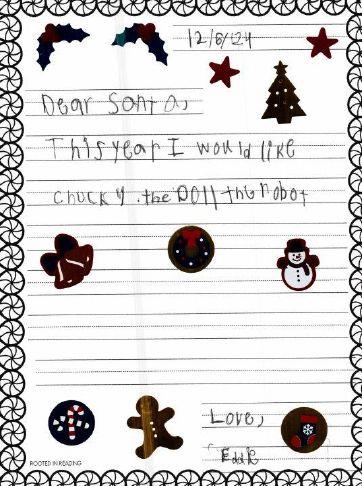 12/6/24
Dear Santa,
This year I would like
chucky .the Doll the robot
Love,
Eddie
ROOTED IN READING